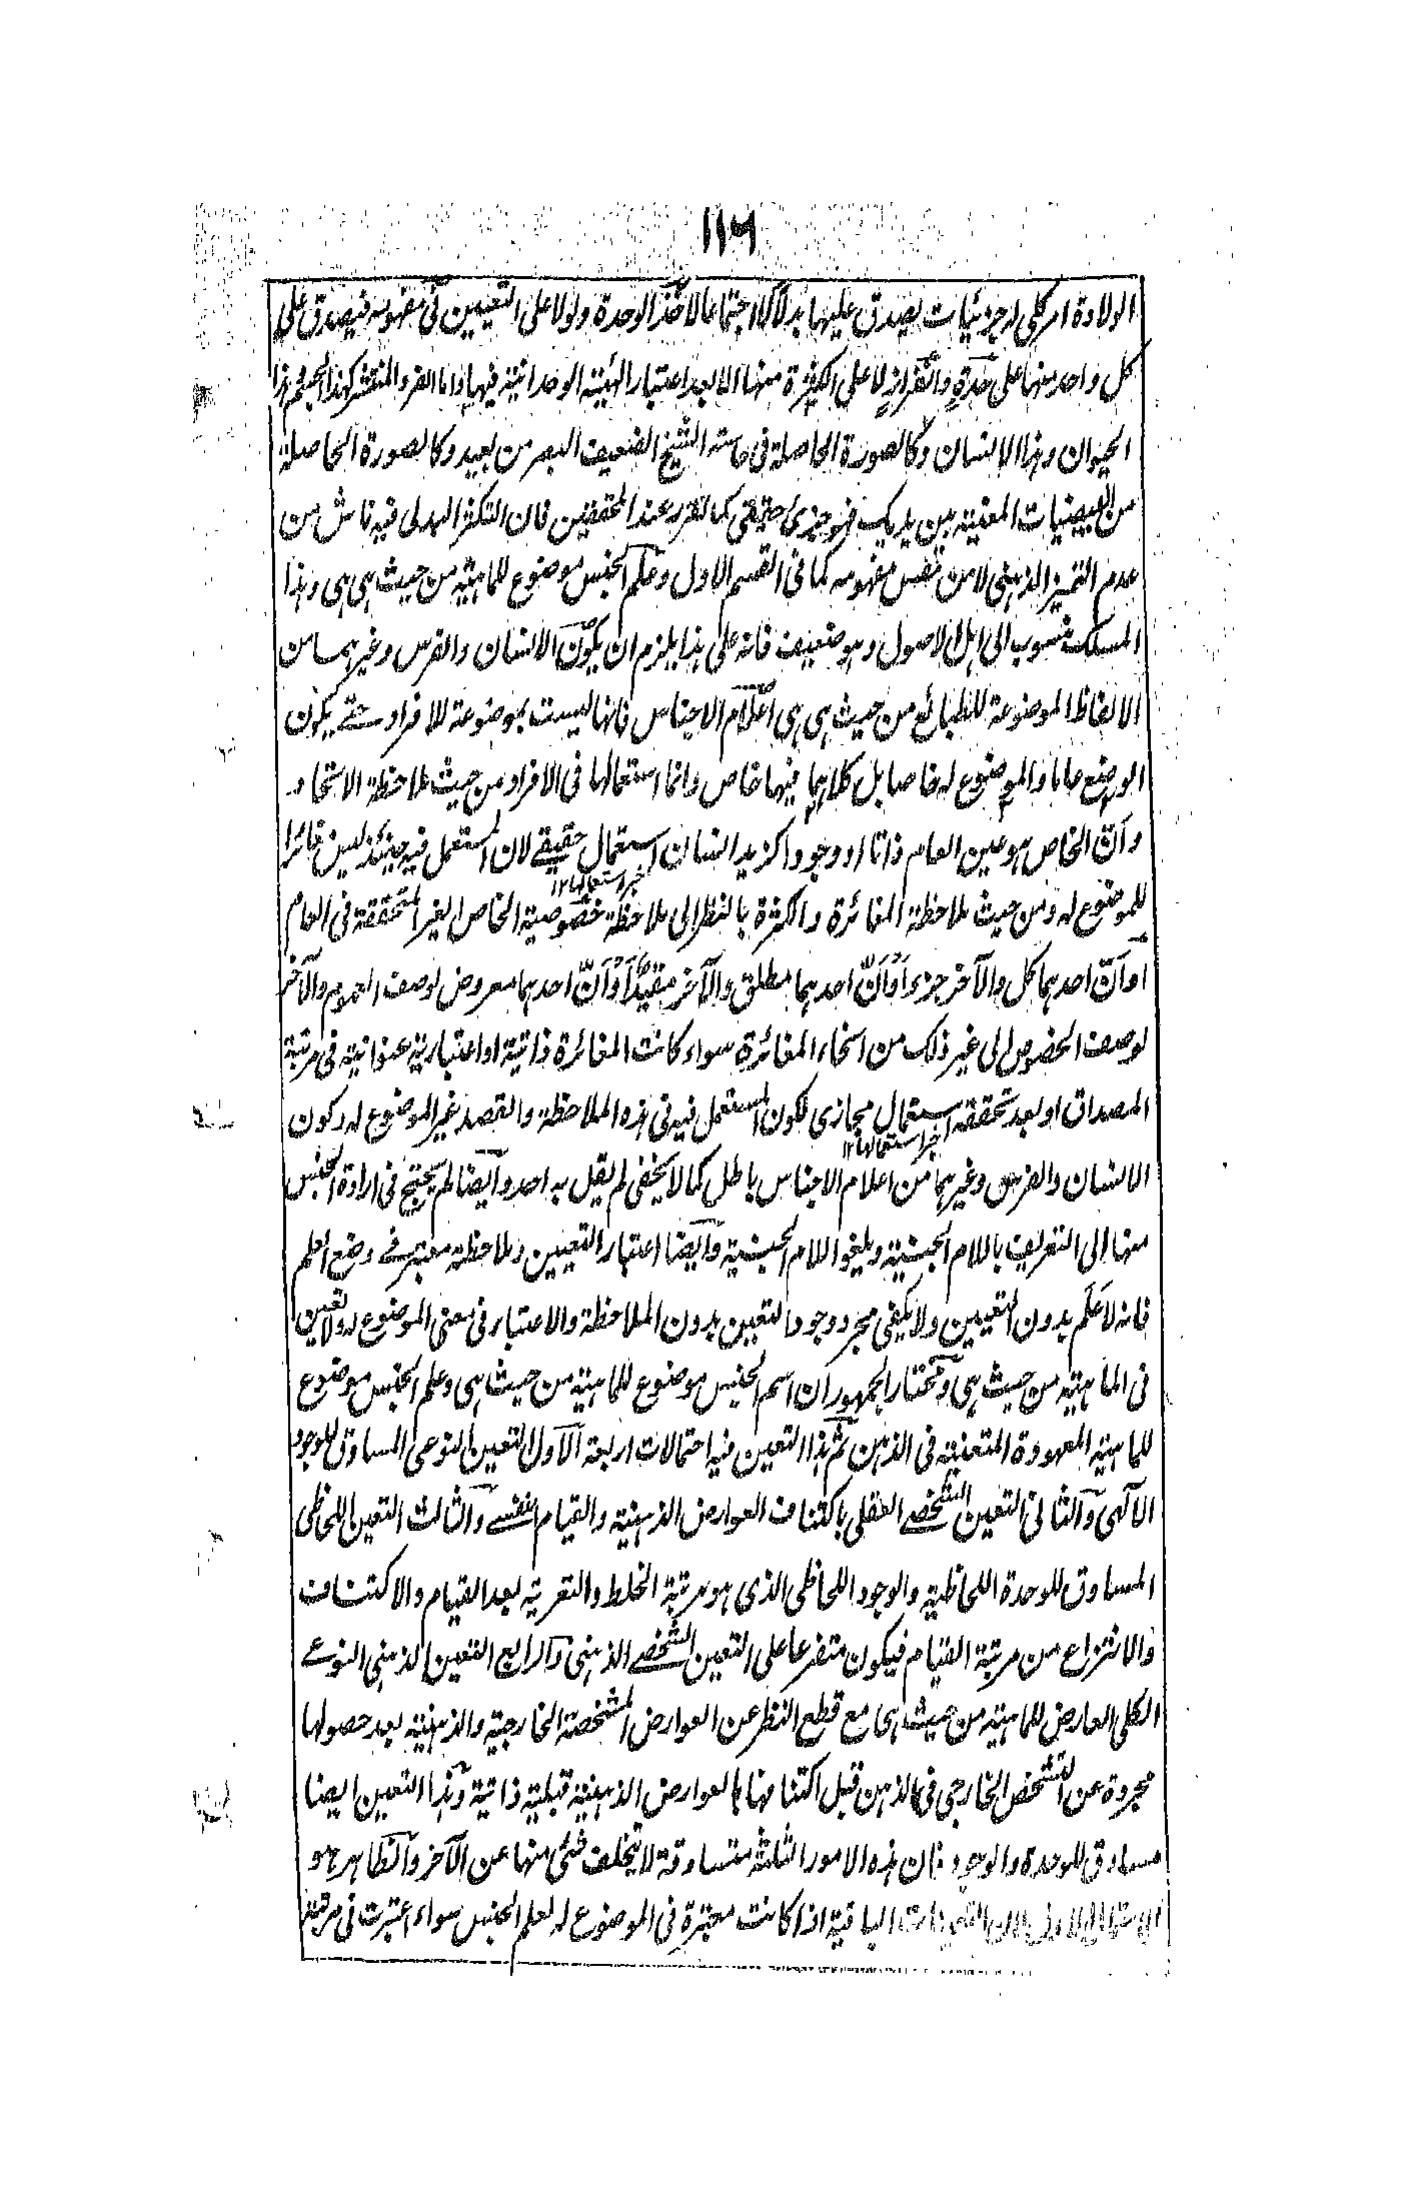 ١١٦
الولادة امر كلى له جزئيات يصدق عليها بدلا لا اجتماعا لاخذ الوحدة ولولا على التعيين فى مفهومه فيصدق على
كل واحد منها على حدة وانفراد لا على الكثرة منها الا بعد اعتبار الهئية الوحدانية فيها واما الفرد المنتشر كهذا الجسم وهذا
الحيوان وهذا الانسان وكالصورة الحاصلة فى حاسة الشيخ الضعيف البصر من بعيد وكالصورة الحاصلة
من البيضيات المعينة بين يديك فهو جزئ حقيقى كما تقرر عند المحققين فان التكثر البدلى فيه ناش من
عدم التميز الذهنى لا من نفس مفهومه كما فى القسم الاول وعلم الجنس موضوع للماهية من حيث هى هى وهذا
المسلك منسوب الى اهل الاصول وهو ضعيف فانه على هذا يلزم ان يكون الانسان والفرس وغيرهما من
الالفاظ الموضوعة للطبائع من حيث هى هى اعلام الاجناس فانها ليست بموضوعة للافراد حتے يكون
الوضع عاما والموضوع له خاصا بل كلاهما فيها خاص وانما استعمالها فى الافراد من حيث ملاحظة الاتحاد
وان الخاص هو عين العام ذاتا او وجودا كزيد انسان استعمال حقيقے لان المستعمل فيه حينئذ ليس مغائرا
خبر استعمالها ١٢
للموضوع له ومن حيث ملاحظة المغائرة والكثرة بالنظر الى ملاحظة خصوصية الخاص الغير المتحققة فى العام
او ان احدهما كل والآخر جزء او ان احدهما مطلق والآخر مقيد او ان احدهما معروض لوصف العموم والآخر
لوصف الخصوص الى غير ذلك من انحاء المغائرة سواء كانت المغائرة ذاتية او اعتبارية عنوانية فى مرتبة
المصداق او بعد تحققه استعمال مجازى لكون المستعمل فيه فى هذه الملاحظة والقصد غير الموضوع له وكون
خبر استعمالها ١٢
الانسان والفرس وغيرهما من اعلام الاجناس باطل كما لا يخفى لم يقل به احد وايضا لم يحتج فى ارادة الجنس
منها الى التعريف باللام الجنسية ويلغوا اللام الجنسية وايضا اعتبار التعيين وملاحظته معتبر فے وضع العلم
فانه لا علم بدون التعيين ولا يكفى مجرد وجود التعين بدون الملاحظة والاعتبار فى معنى الموضوع له ولا تعين
فى الماهية من حيث هى ومختار الجمهور ان اسم الجنس موضوع للماهية من حيث هى وعلم الجنس موضوع
للماهية المعهودة المتعينة فى الذهن ثم هذا التعين فيه احتمالات اربعة الاول التعين النوعى المساوق للوجود
الالهى والثانى التعين الشخصے العقلى باكتناف العوارض الذهنية والقيام النفسے والثالث التعين اللحاظى
المساوق للوحدة اللحاظية والوجود اللحاظى الذى هو مرتبة الخلط والتعرية بعد القيام والاكتناف
والانتزاع من مرتبة القيام فيكون متفرعا على التعين الشخصے الذهنى والرابع التعين الذهنى النوعے
الكلى العارض للماهية من حيث هى مع قطع النظر عن العوارض المشخصة الخارجية والذهنية بعد حصولها
مجردة عن التشخص الخارجى فى الذهن قبل اكتنافها بالعوارض الذهنية قبلية ذاتية وهذا التعين ايضا
مساوق للوحدة والوجود فان هذه الامور الثلثة متساوقة لا يتخلف شئ منها عن الآخر والظاهر هو
الاحتمال الاول لان التعينات الباقية اذا كانت معتبرة فى الموضوع له لعلم الجنس سواء اعتبرت فى مرتبة